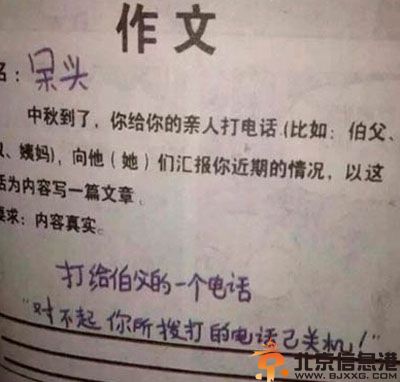 作文
名：呆头
中秋到了，你给你的亲人打电话(比如：伯父、
叔、姨妈)，向他（她）们汇报你近期的情况，以这
话为内容写一篇文章
要求：内容真实
打给伯父的一个电话
"对不起 你所拨打的电话已关机！"
北京信息港
WWW.BJXXG.COM